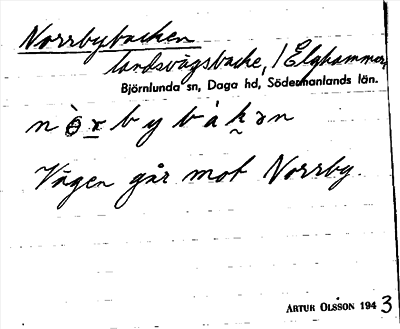 Norrbybacken
landsvägsbacke, / Elghammar,
Björnlunda sn, Daga hd, Södermanlands län.
nò̀rbybàkən
Vägen går mot Norrby.
ARTUR OLSSON 1943